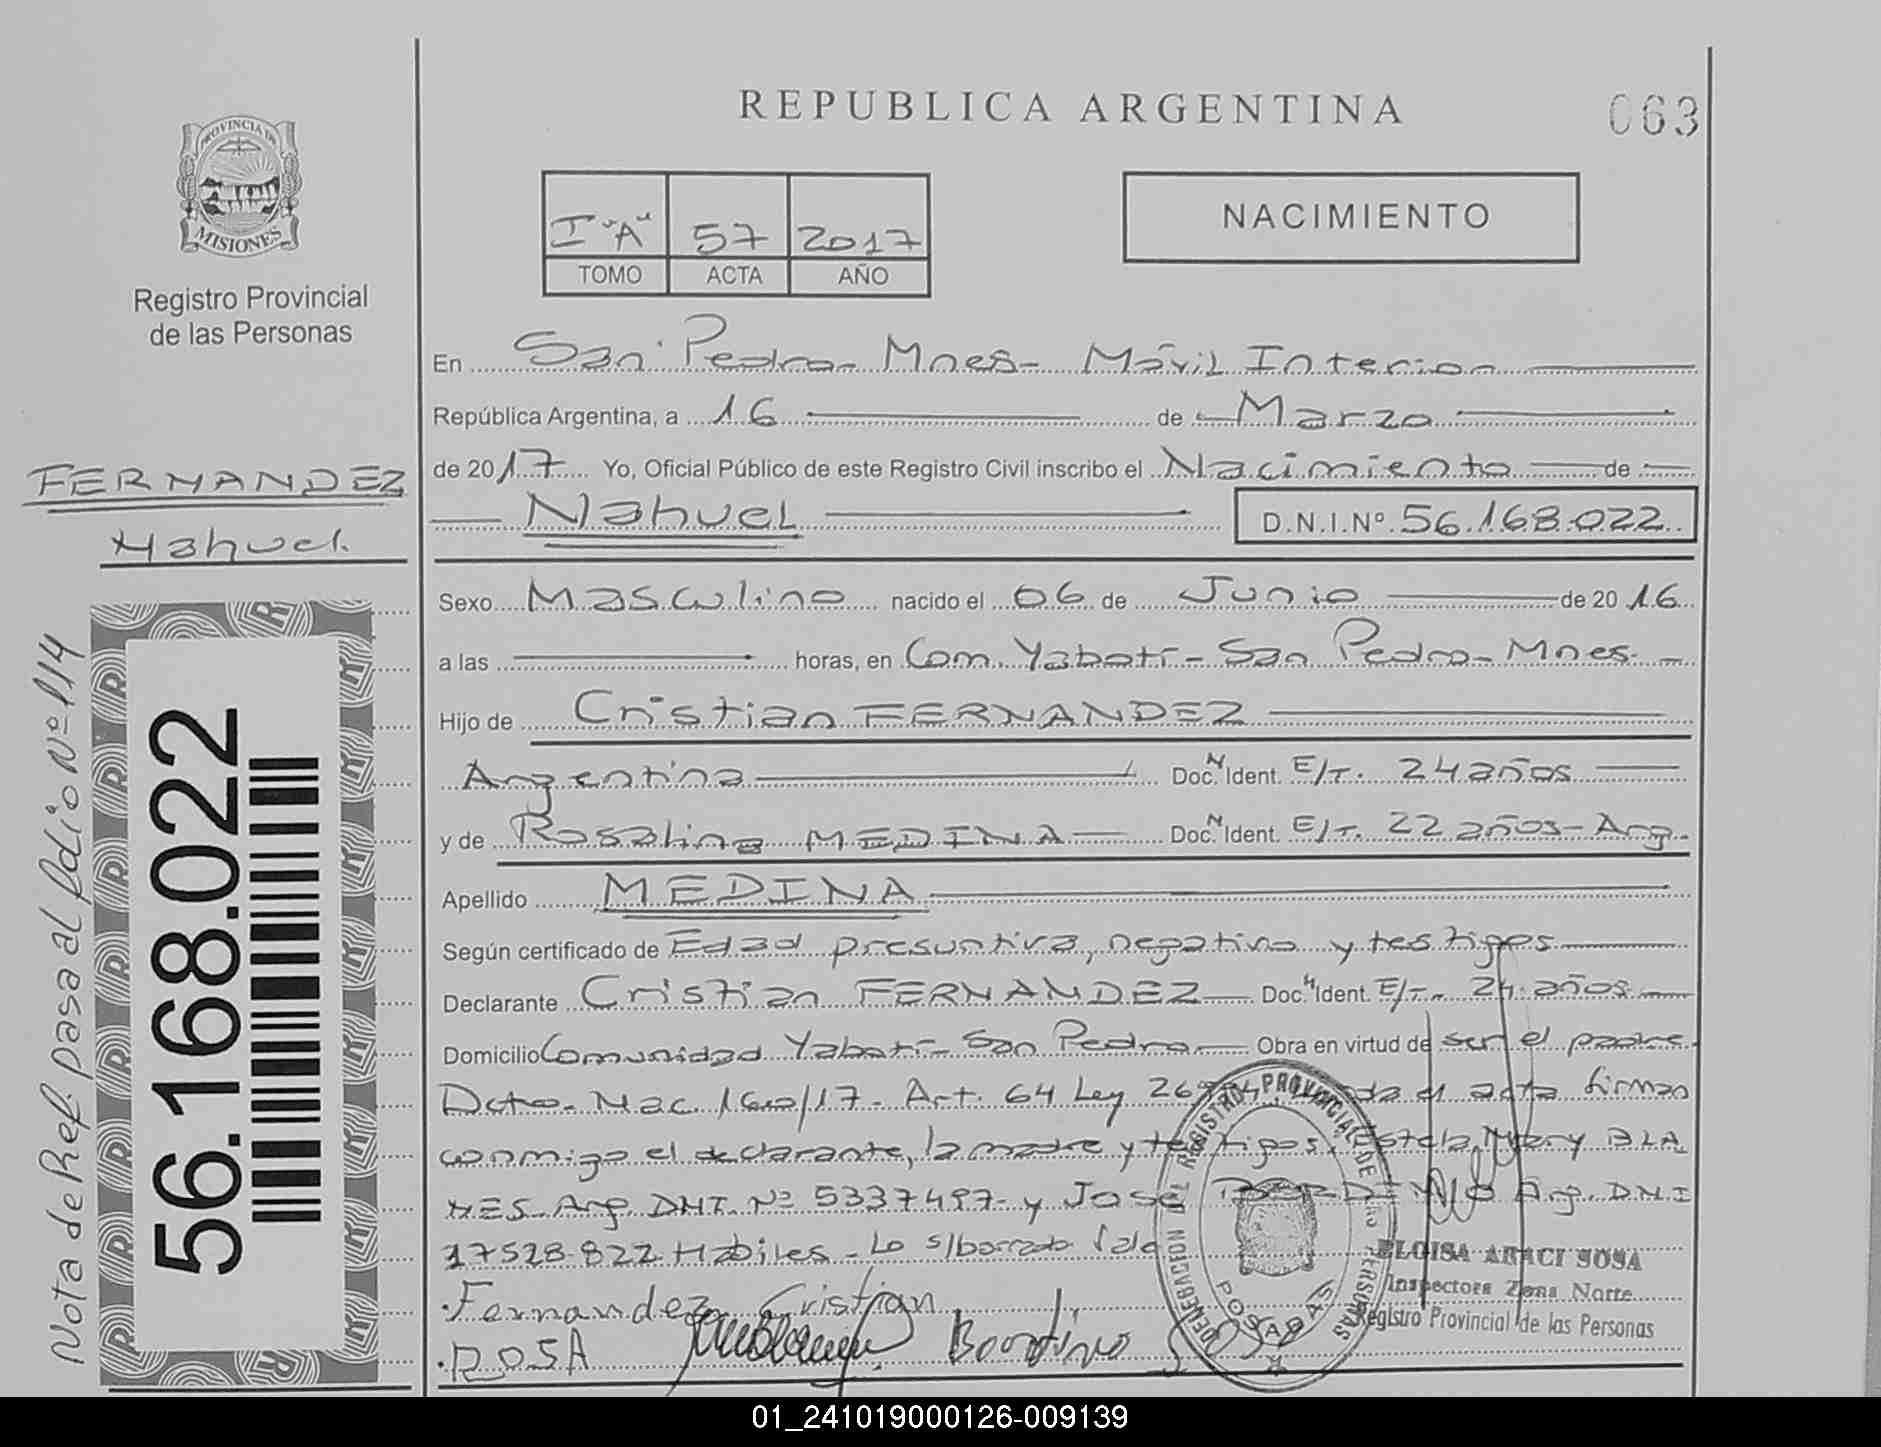 REPUBLICA ARGENTINA
063
PROVINCIA DE
MISIONES
Registro Provincial
de las Personas
I "A" 57 2017
TOMO ACTA AÑO
NACIMIENTO
En San Pedro - Mnes - Móvil Interior
República Argentina, a 16 de Marzo
de 2017 Yo, Oficial Público de este Registro Civil inscribo el Nacimiento de
Nahuel D.N.I.Nº 56.168.022
FERNANDEZ
Nahuel.
Sexo Masculino nacido el 06 de Junio de 2016
a las horas, en Com. Yabotí - San Pedro - Mnes.
Hijo de Cristian FERNANDEZ
Argentina Doc. N Ident. E/T. 24 años
y de Rosalina MEDINA Doc. N Ident. E/T. 22 años - Arg.
Apellido MEDINA
Según certificado de Edad presuntiva, negativo y testigos
Declarante Cristian FERNANDEZ Doc. N Ident. E/T. 24 años
Domicilio Comunidad Yabotí - San Pedro Obra en virtud de ser el padre.
Dcto. Nac. 160/17 - Art. 64 Ley el acta firman
conmigo el declarante, la madre y testigos, Estela Mary BLA
NES Arg. DNI Nº 5337497 - y José Arg. DNI
17528822 Hábiles - Lo s/borrado Vale
Fernandez Cristian
ROSA
DELEGACION DEL REGISTRO PROVINCIAL DE LAS PERSONAS
POSADAS
ELOISA ARACI SOSA
Inspectora Zona Norte
Registro Provincial de las Personas
56.168.022
Nota de Ref. pasa al folio Nº 114
01_241019000126-009139